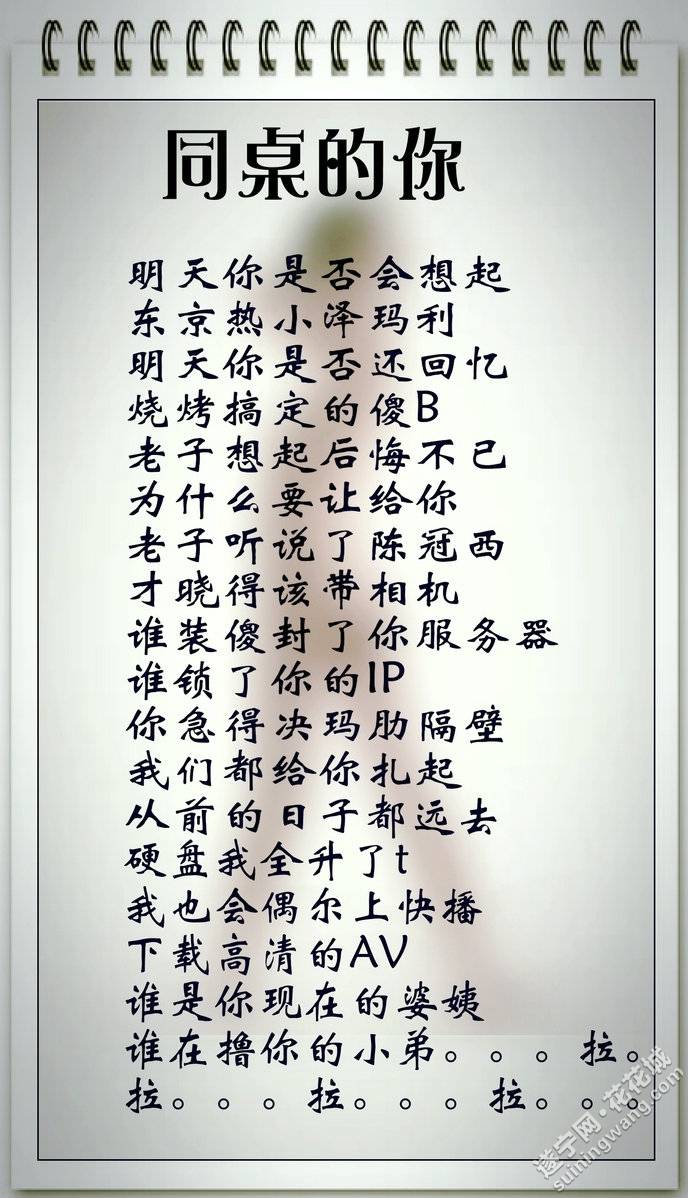 同桌的你
明天你是否会想起
东京热小泽玛利
明天你是否还回忆
烧烤搞定的傻B
老子想起后悔不已
为什么要让给你
老子听说了陈冠西
才晓得该带相机
谁装傻封了你服务器
谁锁了你的IP
你急得决玛肋隔壁
我们都给你扎起
从前的日子都远去
硬盘我全升了t
我也会偶尔上快播
下载高清的AV
谁是你现在的婆姨
谁在撸你的小弟。。。拉。
拉。。。拉。。。拉。。。
遂宁网·花花城
suiningwang.com